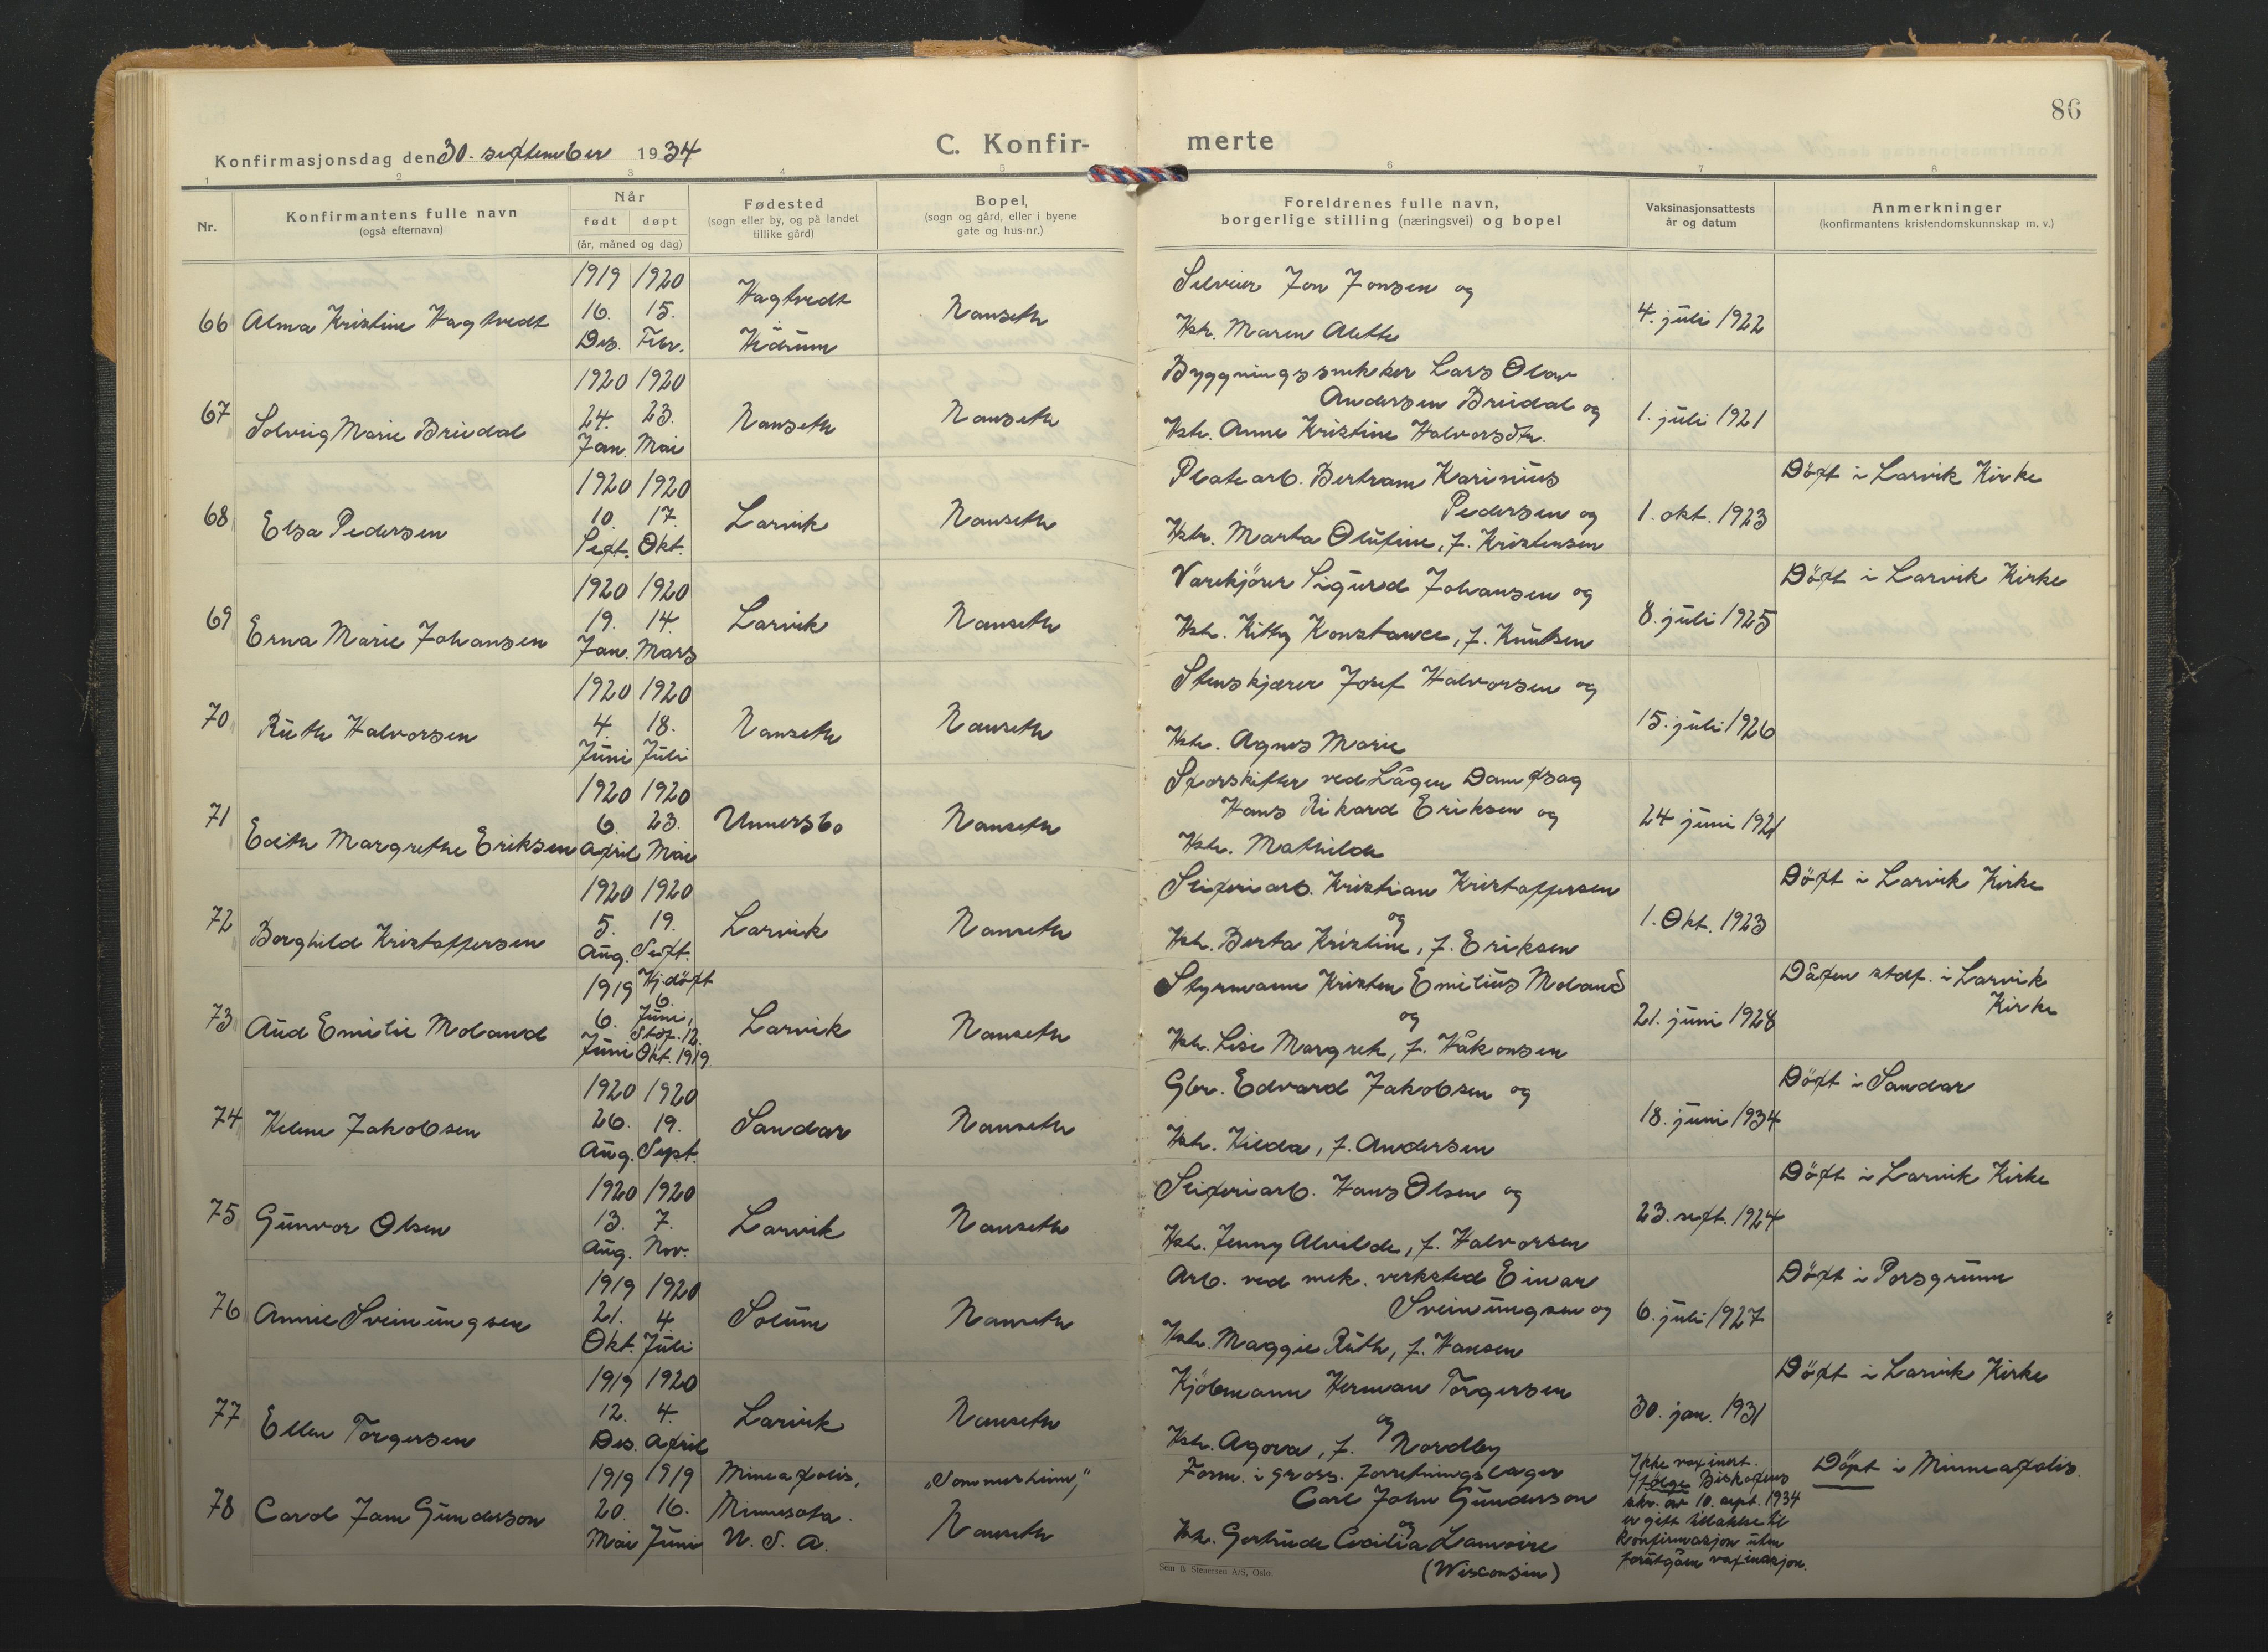 86
Konfirmasjonsdag den 30. september 1934
C. Konfir-
merte
1 2 3 4 5 6 7 8
Nr.
Konfirmantens fulle navn
(også efternavn)
Når
født døpt
(år, måned og dag)
Fødested
(sogn eller by, og på landet
tillike gård)
Bopel,
(sogn og gård, eller i byene
gate og hus-nr.)
Foreldrenes fulle navn,
borgerlige stilling (næringsvei) og bopel
Vaksinasjonsattests
år og datum
Anmerkninger
(konfirmantens kristendomskunnskap m. v.)
66 Alma Kristine Hagtvedt
1919 1920
16. 15.
Des. Febr.
Hagtvedt
Hedrum
Nanseth
Selveier Jon Jonsen og
Hstr. Maren Alette
4. juli 1922
67 Solveig Marie Breidal
1920 1920
24. 23.
Jan. Mai
Nanseth
Nanseth
Byggningssnekker Lars Olav
Andersen Breidal og
Hstr. Anne Kristine Halvorsdtr.
1. juli 1921
68 Elsa Pedersen
1920 1920
10. 17.
Sept. Okt.
Larvik
Nanseth
Platearb. Bertram Karinius
Pedersen og
Hstr. Marta Olufine, f. Kristensen
1. okt. 1923
Döpt i Larvik Kirke
69 Erna Marie Johansen
1920 1920
19. 14.
Jan. Mars
Larvik
Nanseth
Varekjörer Sigurd Johansen og
Hstr. Kitty Konstance, f. Knutsen
8. juli 1925
Döpt i Larvik Kirke
70 Ruth Halvorsen
1920 1920
4. 18.
Juni Juli
Nanseth
Nanseth
Stenskjærer Josef Halvorsen og
Hstr. Agnes Marie
15. juli 1926
71 Edith Margrethe Eriksen
1920 1920
6. 23.
April Mai
Unnersbo
Nanseth
Sporskifter ved Lågen Dampsag
Hans Rikard Eriksen og
Hstr. Mathilde
24 juni 1921
72 Borghild Kristoffersen
1920 1920
5. 19.
Aug. Sept.
Larvik
Nanseth
Sliperiarb. Kristian Kristoffersen
og
Hstr. Berta Kristine, f. Eriksen
1. Okt. 1923
Döpt i Larvik Kirke
73 Aud Emilie Moland
1919 Hjdöpt
6. 6.
Juni Juni,
Stdf. 12.
Okt. 1919
Larvik
Nanseth
Styrmann Kristen Emilius Moland
og
Hstr. Lise Margrete, f. Håkonsen
21. juni 1928
Dåpen stdf. i Larvik
Kirke
74 Helene Jakobsen
1920 1920
26. 19.
Aug. Sept.
Sandar
Nanseth
Gbr. Edvard Jakobsen og
Hstr. Hilda, f. Andersen
18. juni 1934
Döpt i Sandar
75 Gunvor Olsen
1920 1920
13. 7.
Aug. Nov.
Larvik
Nanseth
Sliperiarb. Hans Olsen og
Hstr. Jenny Alvilde, f. Halvorsen
23. sept. 1924
Döpt i Larvik Kirke
76 Annie Sveinungsen
1919 1920
21. 4.
Okt. Juli
Solum
Nanseth
Arb. ved mek. verksted Einar
Sveinungsen og
Hstr. Maggie Ruth, f. Hansen
6. juli 1927
Döpt i Porsgrunn
77 Ellen Torgersen
1919 1920
12. 4.
Des. April
Larvik
Nanseth
Kjöbmann Herman Torgersen
og
Hstr. Agora, f. Nordby
30. jan. 1931
Döpt i Larvik Kirke
78 Carol Jane Gunderson
1919 1919
20. 16.
Mai Juni
Mineapolis,
Minnesota.
U. S. A.
„Sommerheim,"
Nanseth
Form. i gross. forretningslager
Carl John Gunderson
og
Hstr. Gertrude Cecilia Lamoire
(Wisconsin)
Ikke vaxinert.
Ifølge Biskopens
skr. av 10. sept. 1934
er gitt tillatelse til
konfirmasjon uten
forutgåen vaxinasjon.
Döpt i Minneapolis.
Sem & Stenersen A/S, Oslo.